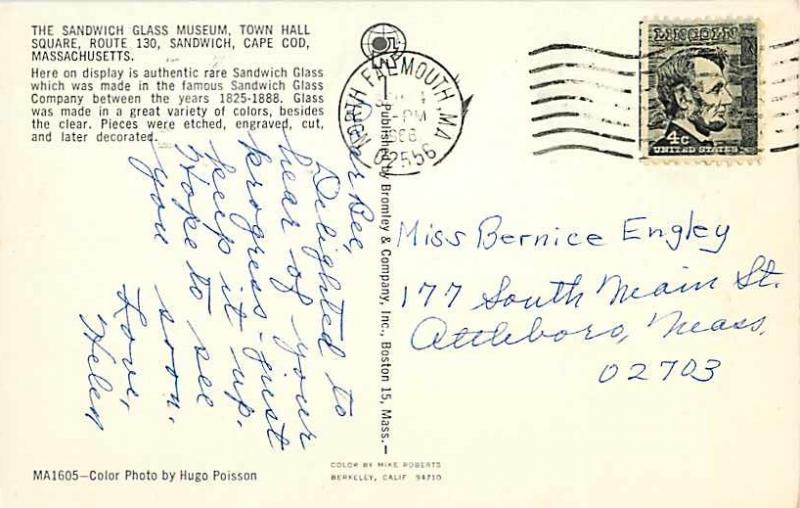 THE SANDWICH GLASS MUSEUM, TOWN HALL
SQUARE, ROUTE 130, SANDWICH, CAPE COD,
MASSACHUSETTS.
Here on display is authentic rare Sandwich Glass
which was made in the famous Sandwich Glass
Company between the years 1825-1888. Glass
was made in a great variety of colors, besides
the clear. Pieces were etched, engraved, cut,
and later decorated.
Dear Bee,
Delighted to
hear of your
progress - just
keep it up.
Hope to see
you soon.
Love,
Helen
MA1605—Color Photo by Hugo Poisson
Published by Bromley & Company, Inc., Boston 15, Mass.
COLOR BY MIKE ROBERTS
BERKELEY, CALIF 94710
NORTH FALMOUTH MA
PM
02556
LINCOLN
4c
UNITED STATES
Miss Bernice Engley
177 South Main St.
Attleboro, Mass.
02703